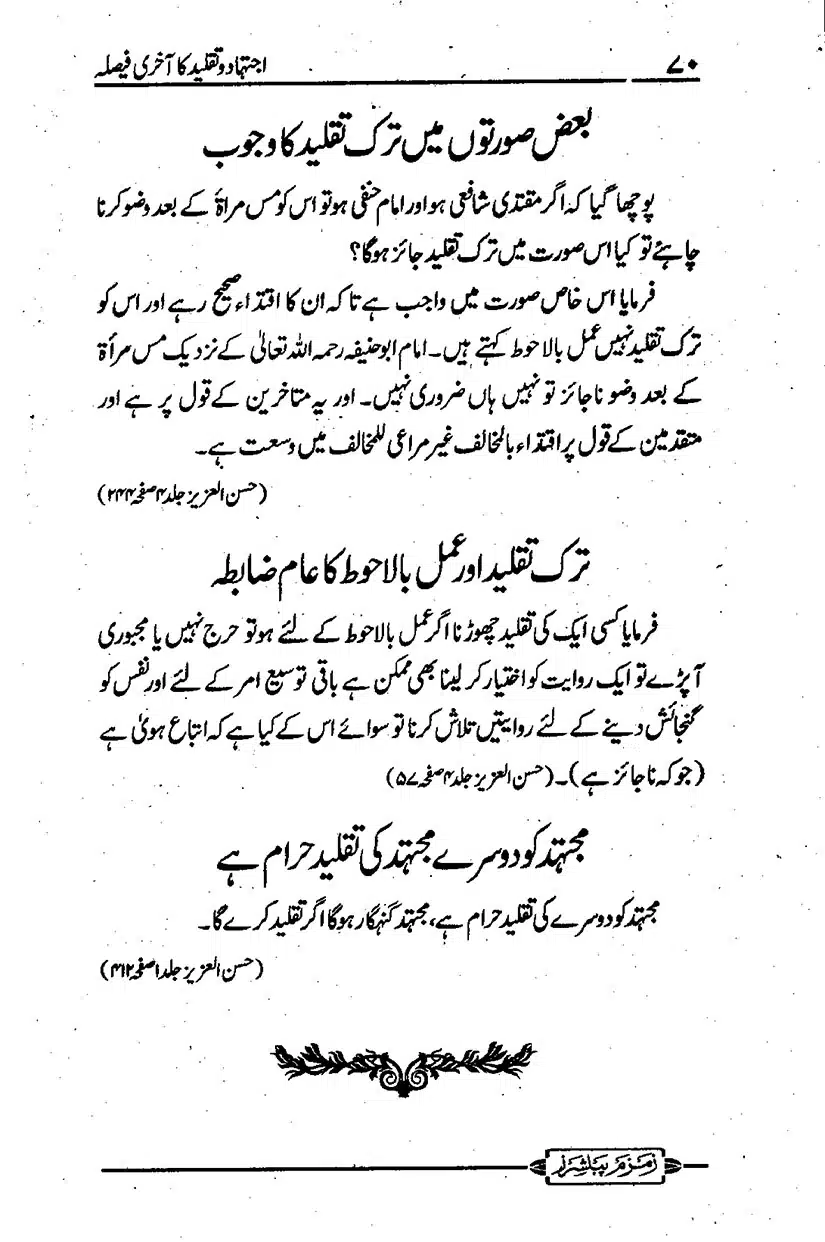 ۷۰
اجتہاد و تقلید کا آخری فیصلہ
بعض صورتوں میں ترک تقلید کا وجوب
پوچھا گیا کہ اگر مقتدی شافعی ہو اور امام حنفی ہو تو اس کو مس مراۃ کے بعد وضو کرنا
چاہئے تو کیا اس صورت میں ترک تقلید جائز ہوگا؟
فرمایا اس خاص صورت میں واجب ہے تاکہ ان کا اقتداء صحیح رہے اور اس کو
ترک تقلید نہیں عمل بالاحوط کہتے ہیں۔ امام ابو حنیفہ رحمہ اللہ تعالیٰ کے نزدیک مس مرأۃ
کے بعد وضو ناجائز تو نہیں ہاں ضروری نہیں۔ اور یہ متاخرین کے قول پر ہے اور
متقدمین کے قول پر اقتداء بالمخالف غیر مراعی للمخالف میں وسعت ہے۔
(حسن العزیز جلد ۴ صفحہ ۲۴۴)
ترک تقلید اور عمل بالاحوط کا عام ضابطہ
فرمایا کسی ایک کی تقلید چھوڑنا اگر عمل بالاحوط کے لئے ہو تو حرج نہیں یا مجبوری
آپڑے تو ایک روایت کو اختیار کر لینا بھی ممکن ہے باقی توسیع امر کے لئے اور نفس کو
گنجائش دینے کے لئے روایتیں تلاش کرنا تو سوائے اس کے کیا ہے کہ اتباع ہویٰ ہے
(جو کہ ناجائز ہے)۔ (حسن العزیز جلد ۴ صفحہ ۵۷)
مجتہد کو دوسرے مجتہد کی تقلید حرام ہے
مجتہد کو دوسرے کی تقلید حرام ہے، مجتہد گنہگار ہوگا اگر تقلید کرے گا۔
(حسن العزیز جلد ۱ صفحہ ۴۱۲)
زمزم پبلشرز